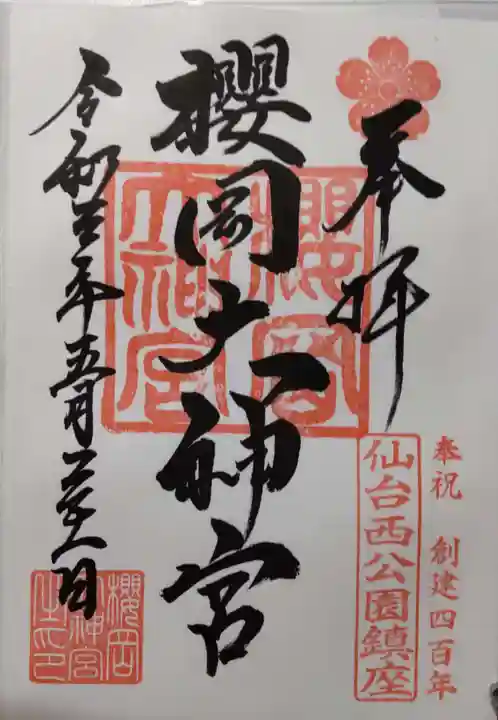 奉拝
奉祝 創建四百年
仙台西公園鎮座
櫻岡大神宮
櫻岡大神宮
令和 年五月 日
櫻岡
神宮
之印